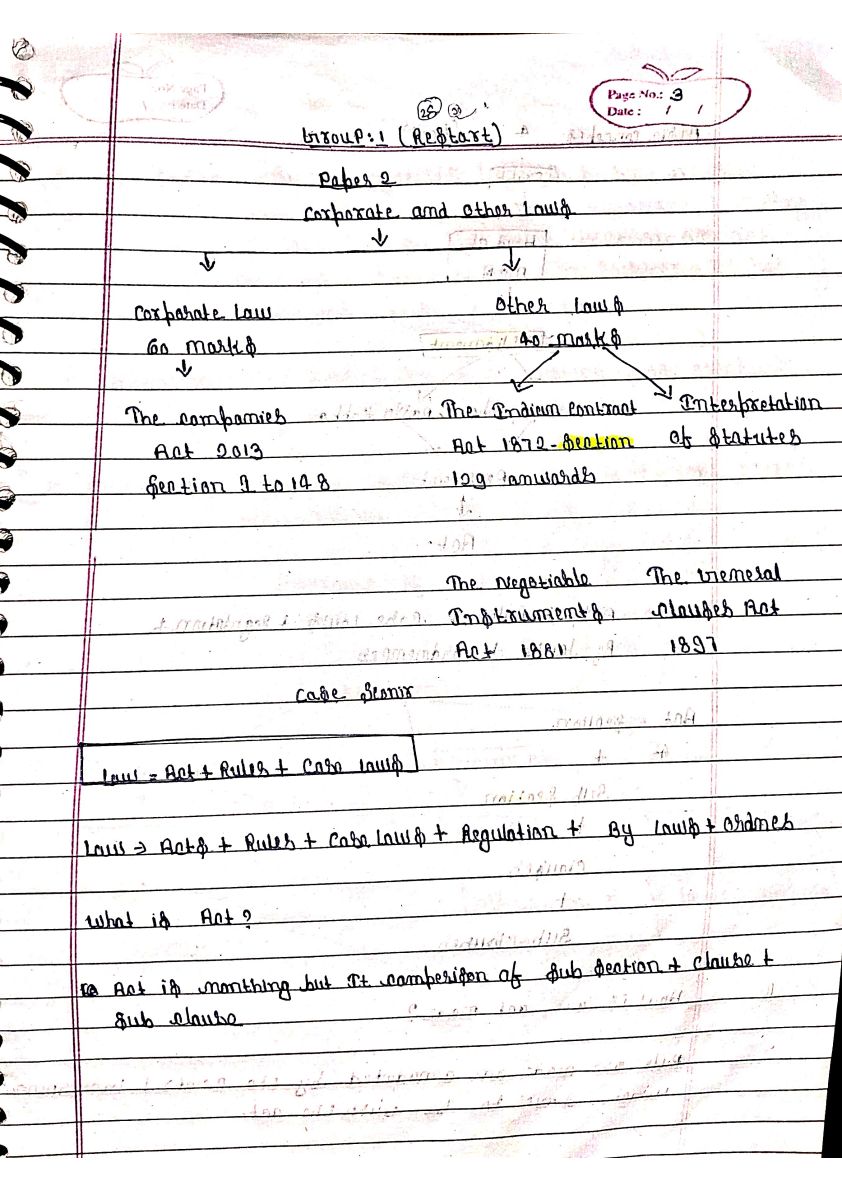 Page No.: 3
Date : / /
Group: 1 (Restart)
Paper 2
Corporate and Other Laws
Corporate Law
60 Marks
Other Laws
40 Marks
The Companies
Act 2013
Section 1 to 148
The Indian Contract
Act 1872 - Section
129 anwards
Interpretation
of Statutes
The Negotiable
Instruments
Act 1881
The General
Clauses Act
1897
Case
Law = Act + Rules + Case Laws
Law ⇒ Acts + Rules + Case Laws + Regulation + By Laws + Ordnes
What is Act?
Act is monthing but It comperison of Sub Section + Clause +
Sub Clause